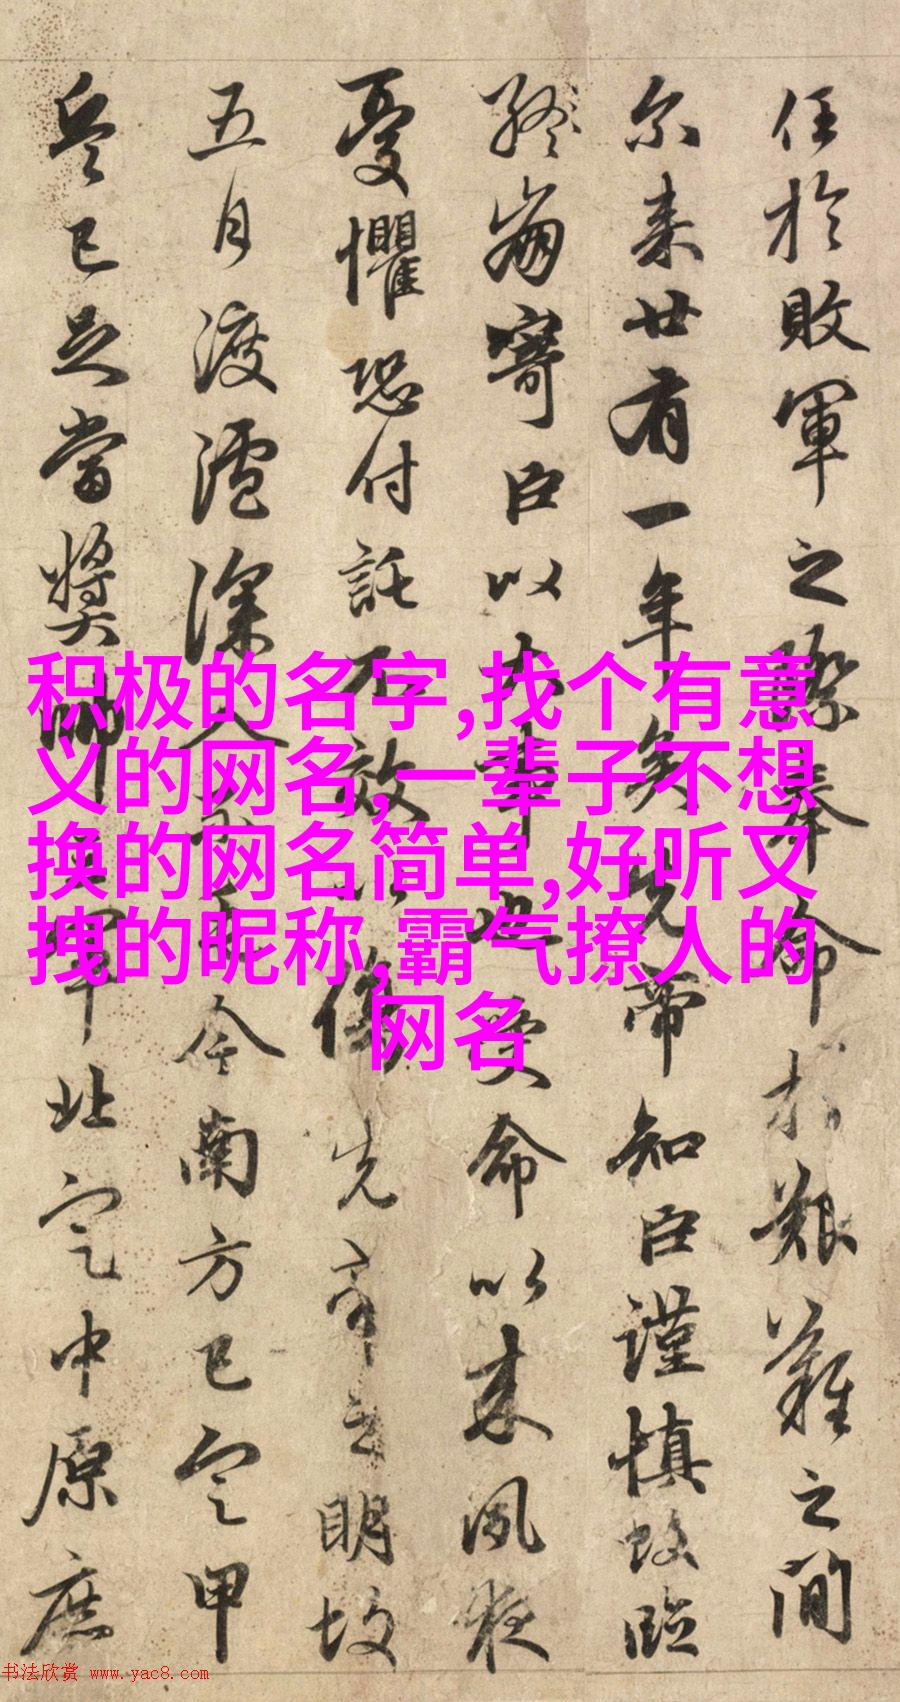 任於敗軍之際奉命於艱難之間
尓来廿有一年矣先帝知臣謹慎故臨
終崩寄臣以大事也受命以来夙夜
憂懼恐付託不效以傷先帝之明故
五月渡瀘深入不毛今南方已定甲
兵已足當獎帥三軍北定中原庶
积极的名字,找个有意
义的网名,一辈子不想
换的网名简单,好听又
拽的昵称,霸气撩人的
网名
书法欣赏 www.yac8.com